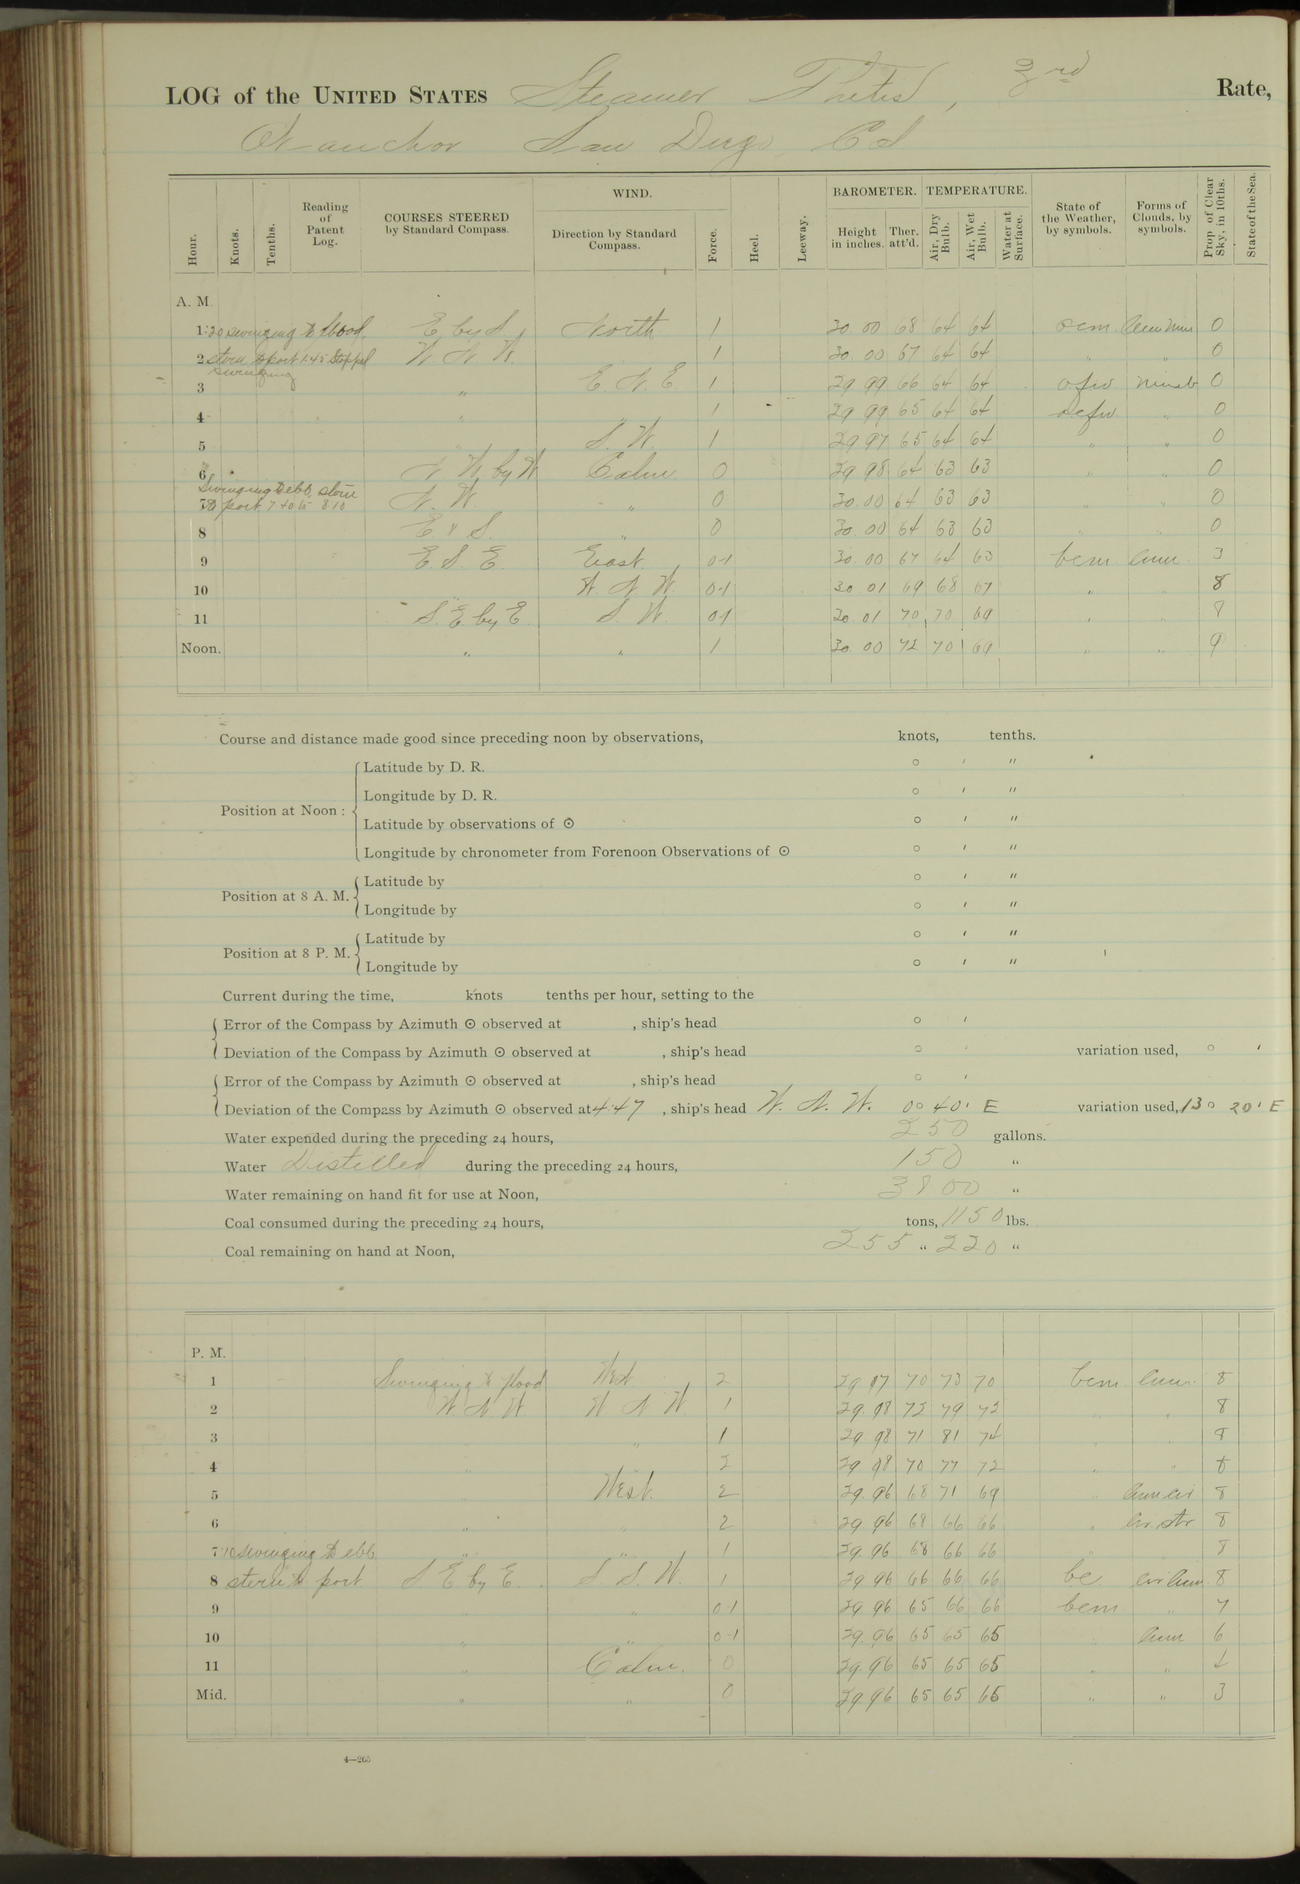 LOG of the UNITED STATES Steamer Thetis, 3rd Rate,
At anchor San Diego, Cal
Hour. Knots. Tenths. Reading of Patent Log. COURSES STEERED by Standard Compass. WIND. Direction by Standard Compass. Force. Heel. Leeway. BAROMETER. Height in inches. Ther. att'd. TEMPERATURE. Air, Dry Bulb. Air, Wet Bulb. Water at Surface. State of the Weather, by symbols. Forms of Clouds, by symbols. Prop. of Clear Sky, in 10ths. State of the Sea.
A. M.
1 1:20 swinging to flood E by S North 1 30 00 68 64 64 ocm 0
2 stern to port 1:45 stopped W N W 1 30. 00 67 64 64 " " 0
swinging
3 " E N E 1 29 99 66 64 64 ofw 0
4 " " 1 29 99 65 64 64 ocfw " 0
5 " S. W. 1 29 97 65 64 64 " " 0
6 N W by W Calm 0 29 98 64 63 63 " " 0
Swinging to ebb stern
7 to port 7 40 to 8 10 N. W " 0 30. 00 64 63 63 " " 0
8 E & S. " 0 30. 00 64 63 63 " " 0
9 E. S. E East. 0-1 30. 00 67 64 63 bcm cum. 3
10 " W. N. W. 0-1 30 01 69 68 67 " " 8
11 S. E by E S. W. 0-1 30. 01 70 70 69 " " 8
Noon. " " 1 30. 00 72 70 69 " " 9
Course and distance made good since preceding noon by observations, knots, tenths.
Position at Noon: Latitude by D. R. ° ′ ″
Longitude by D. R. ° ′ ″
Latitude by observations of ☉ ° ′ ″
Longitude by chronometer from Forenoon Observations of ☉ ° ′ ″
Position at 8 A. M. Latitude by ° ′ ″
Longitude by ° ′ ″
Position at 8 P. M. Latitude by ° ′ ″
Longitude by ° ′ ″
Current during the time, knots tenths per hour, setting to the
Error of the Compass by Azimuth ☉ observed at , ship's head ° ′
Deviation of the Compass by Azimuth ☉ observed at , ship's head ° ′ variation used, ° ′
Error of the Compass by Azimuth ☉ observed at , ship's head ° ′
Deviation of the Compass by Azimuth ☉ observed at 4:47 , ship's head W. N. W. 0° 40′ E variation used, 13° 20′ E
Water expended during the preceding 24 hours, 250 gallons.
Water Distilled during the preceding 24 hours, 150 "
Water remaining on hand fit for use at Noon, 3800 "
Coal consumed during the preceding 24 hours, tons, 1150 lbs.
Coal remaining on hand at Noon, 255 " 220 "
P. M.
1 Swinging to flood West 2 29 97 70 73 70 bcm cum. 8
2 W. N. W W N W 1 29. 98 72 79 72 " " 8
3 " " 1 29 98 71 81 74 " " 8
4 " " 2 29 98 70 77 72 " " 8
5 " West. 2 29. 96 68 71 69 " cum cir 8
6 " " 2 29 96 68 66 66 " cir str 8
7 7:10 swinging to ebb " " 1 29. 96 68 66 66 " " 8
8 stern to port S E by E S. S. W. 1 29 96 66 66 66 bc cir cum. 8
9 " " 0-1 29 96 65 66 66 bcm " 7
10 " " 0-1 29. 96 65 65 65 " cum 6
11 " Calm. 0 29. 96 65 65 65 " "
Mid. " " 0 29 96 65 65 65 " " 3
4—265